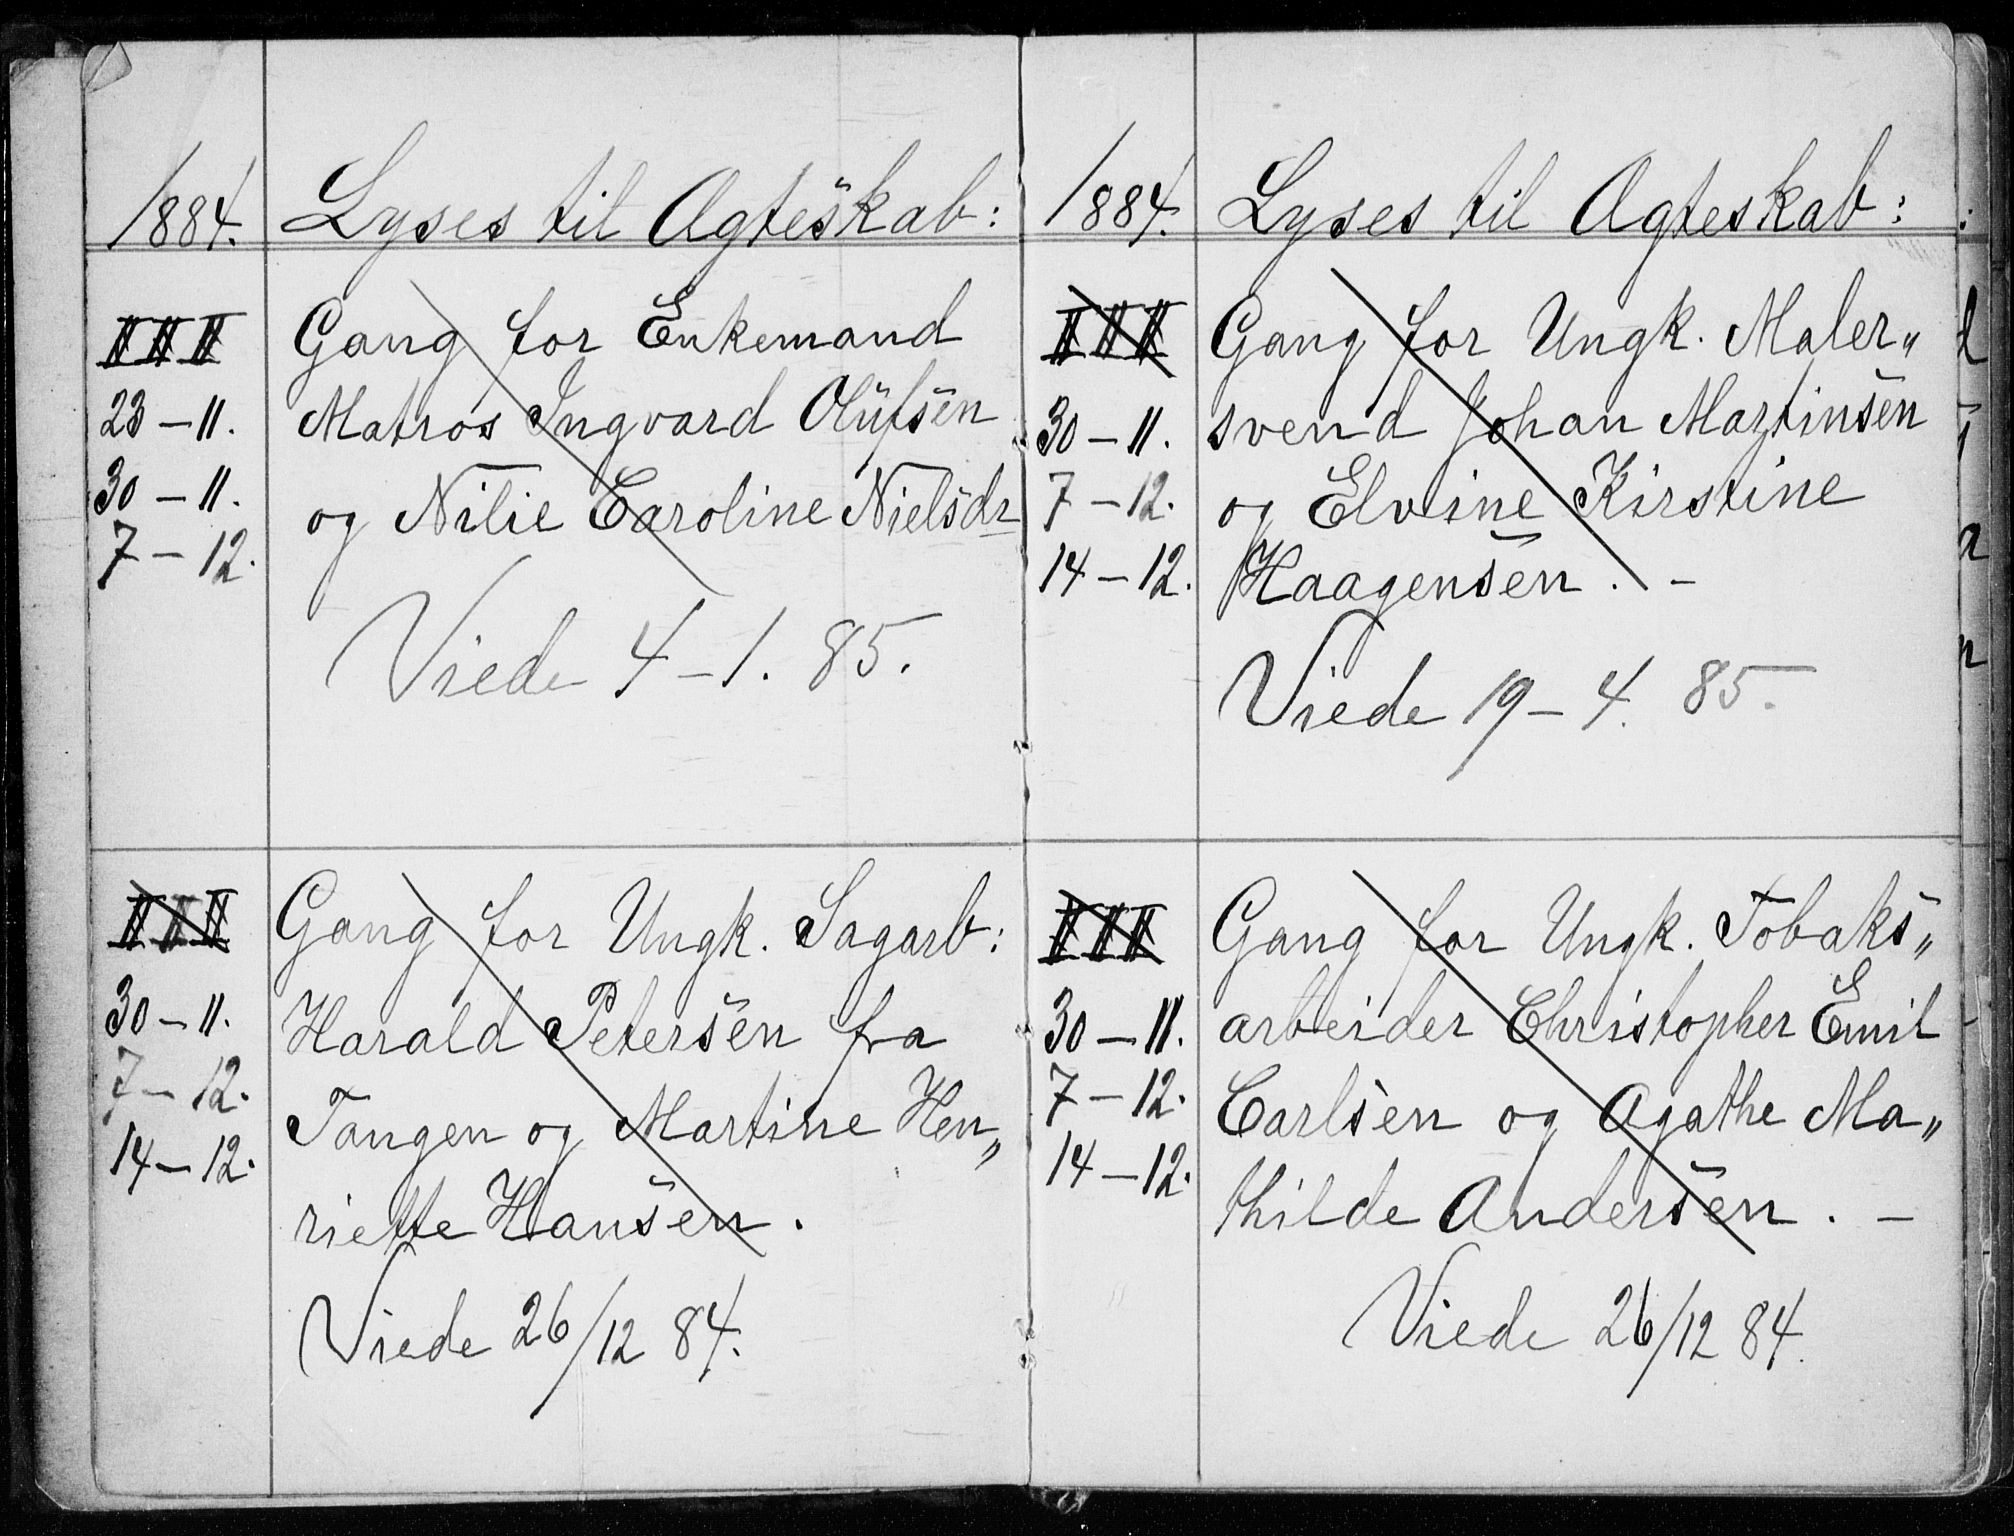 1884. Lyses til Agteskab:
III Gang for Enkemand
23 - 11. Matros Ingvard Olufsen
30 - 11. og Nilie Caroline Nielsdr
7 - 12.
Viede 4 - 1. 85.
III Gang for Ungk. Sagarb:
30 - 11. Harald Petersen fra
7 - 12. Tangen og Martine Hen„
14 - 12. riette Hansen.
Viede 26/12 84.
1884. Lyses til Agteskab:
III Gang for Ungk. Maler„
30 - 11. svend Johan Martinsen
7 - 12. og Elvine Kirstine
14 - 12. Haagensen. -
Viede 19 - 4. 85.
III Gang for Ungk. Tobaks„
30 - 11. arbeider Christopher Emil
7 - 12. Carlsen og Agathe Ma„
14 - 12. thilde Andersen. -
Viede 26/12 84.